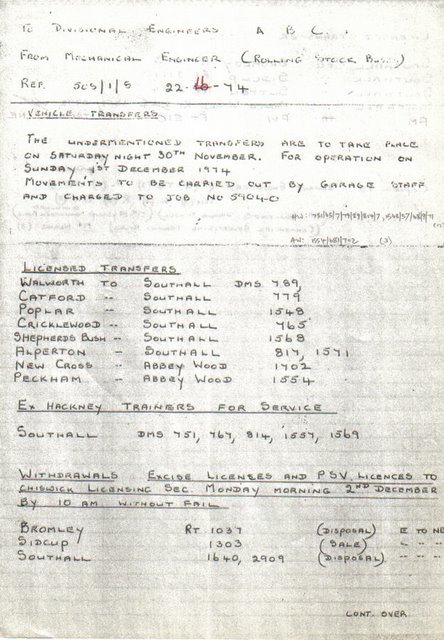 TO DIVISIONAL ENGINEERS A B C.
FROM MECHANICAL ENGINEER (ROLLING STOCK BUSES)
REF. 505/1/5 22-11-74
VEHICLE TRANSFERS
THE UNDERMENTIONED TRANSFERS ARE TO TAKE PLACE
ON SATURDAY NIGHT 30TH NOVEMBER. FOR OPERATION ON
SUNDAY 1ST DECEMBER 1974
MOVEMENTS TO BE CARRIED OUT BY GARAGE STAFF
AND CHARGED TO JOB NO 59040
AW: 1554/1702 (3)
LICENSED TRANSFERS
WALWORTH TO SOUTHALL DMS 789,
CATFORD -- SOUTHALL 779
POPLAR -- SOUTHALL 1548
CRICKLEWOOD -- SOUTHALL 765
SHEPHERDS BUSH -- SOUTHALL 1568
ALPERTON -- SOUTHALL 817, 1571
NEW CROSS -- ABBEY WOOD 1702
PECKHAM -- ABBEY WOOD 1554
EX HACKNEY TRAINERS FOR SERVICE
SOUTHALL DMS 751, 767, 814, 1557, 1569
WITHDRAWALS EXCISE LICENSES AND PSV. LICENCES TO
CHISWICK LICENSING SEC. MONDAY MORNING 2ND DECEMBER
BY 10 AM WITHOUT FAIL
BROMLEY RT 1037 (DISPOSAL) E TO NE
SIDCUP 1303 (SALE) " " "
SOUTHALL 1640, 2909 (DISPOSAL) " " "
CONT. OVER